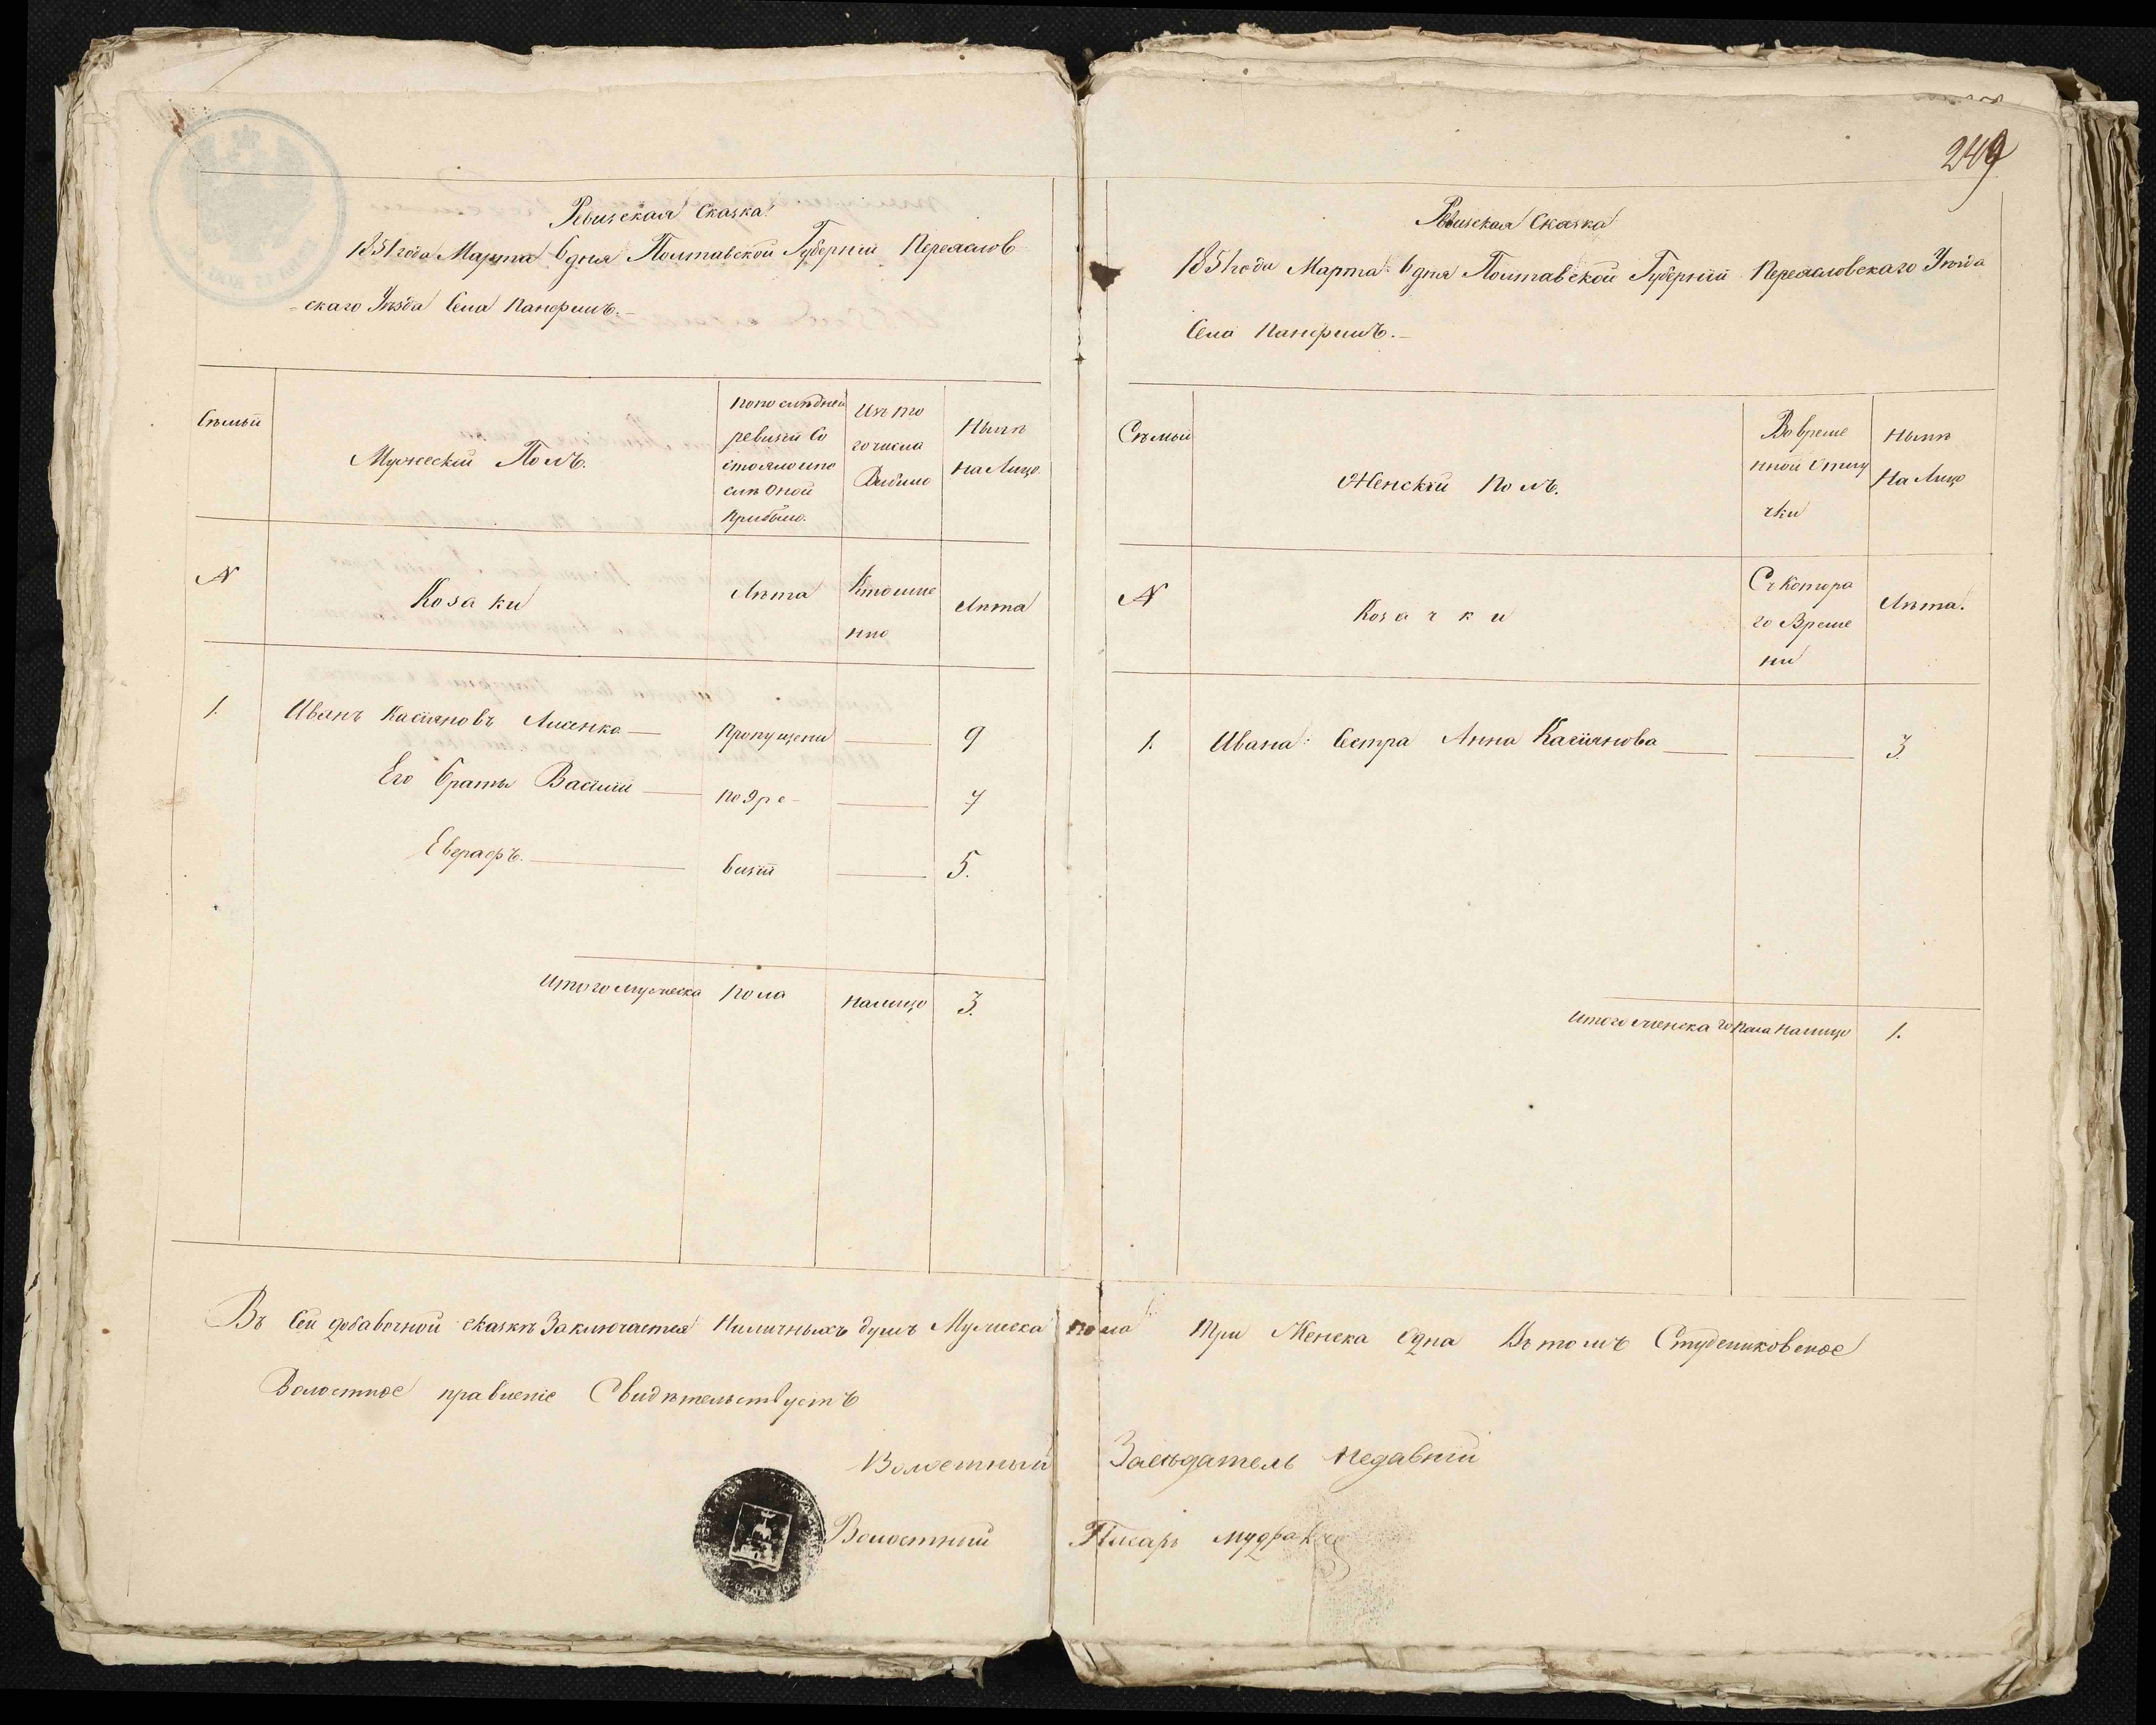 249
Ревизская Сказка
1851 года Марта 6 дня Полтавской Губерніи Переяслов
-скаго Уѣзда Села Панфилъ.-
Сѣмьи
Мужескій Полъ.
по последней
ревизіи Со
стояло ипо
слѣ Оной
прибыло.
Изъ то
го числа
Выбыло
Нынѣ
На Лицо.
N
Козаки
Лѣта
Кто име
нно
Лѣта
1. Иванъ Касіяновъ Лисенко — пропущены — 9
Его братья Василій — по 9 ре- — 7
Евграфъ. — визіи — 5.
Итого мужеска пола налицо 3.
Ревизская Сказка
1851 года Марта 6 дня Полтавской Губерніи Переясловскаго Уѣзда
Села Панфилъ.-
Сѣмьи
Женскій Полъ.
Во време
нной Отлу
чки
Нынѣ
На Лицо
N
Козачки
Съ Котора
го Време
ни
Лѣта.
1. Ивана Сестра Анна Касіянова — — 3.
Итого женскаго пола налицо 1.
Въ Сей добавочной сказкѣ Заключается Наличныхъ душъ Мужеска пола три Женска Одна Въ томъ Студениковское
Волостное правленіе Свидѣтельствуетъ
Волостный Засѣдатель Недавній
Волостный Писарь